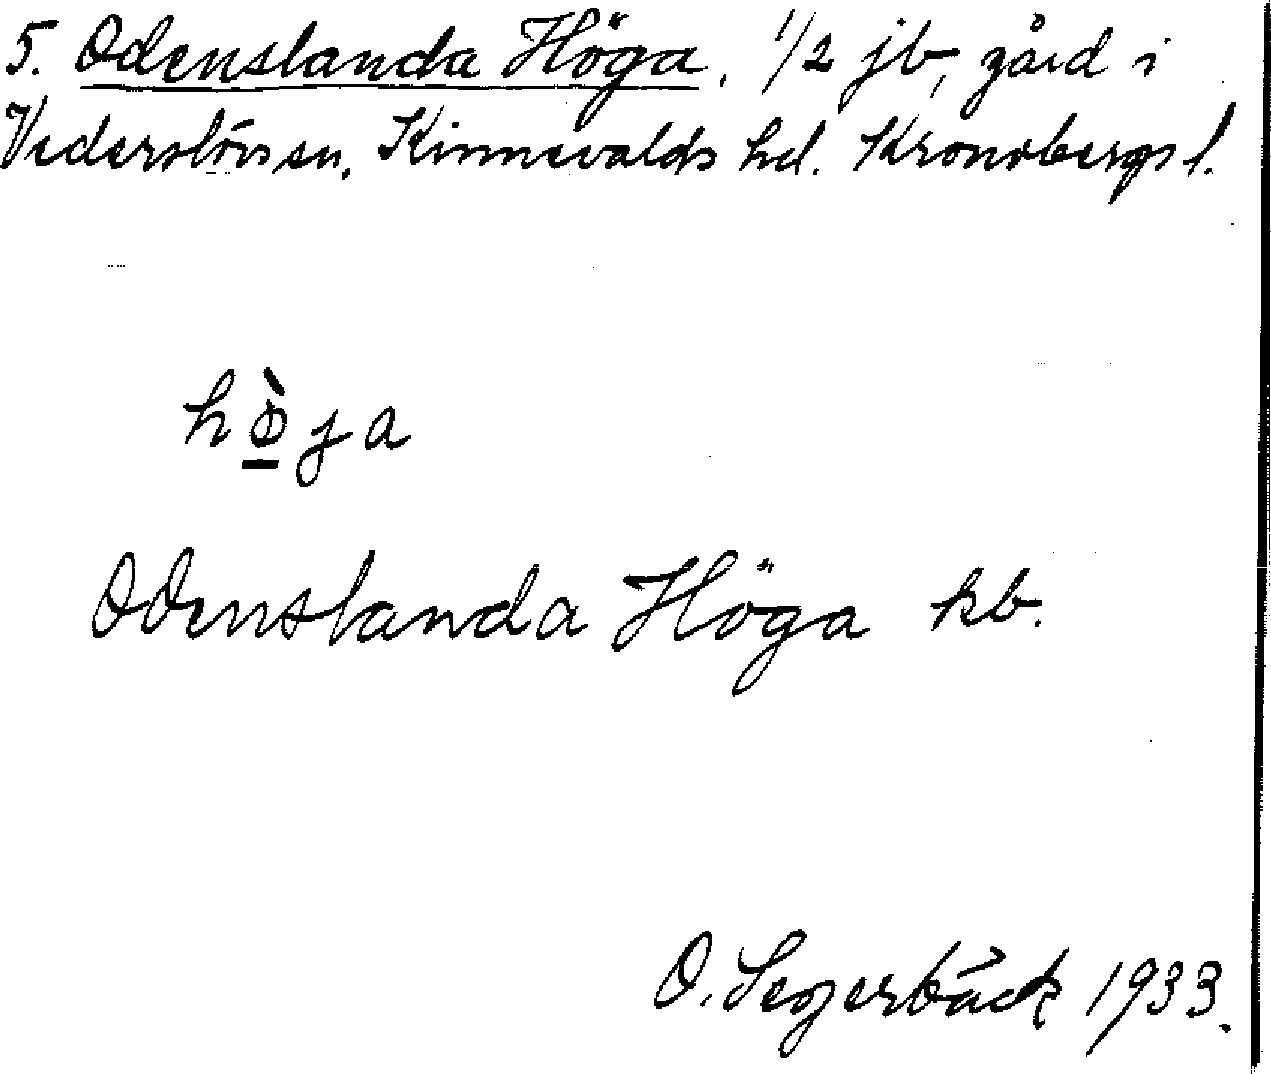 5. Odenslanda Höga, 1/2 jb, gård i
Vederslövs sn, Kinnevalds hd. Kronobergs l.
hø̀ja
Odenslanda Höga kb.
O. Segerbäck 1933.